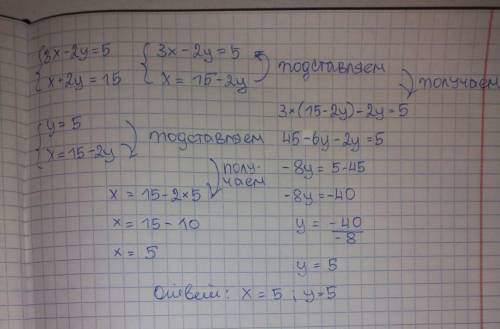 {3x-2y=5 {3x-2y=5 подставляем
{x+2y=15 {x=15-2y получаем
3×(15-2y)-2y=5
45-6y-2y=5
-8y=5-45
-8y=-40
y=-40/-8
y=5
{y=5
{x=15-2y подставляем
полу-
чаем
x=15-2×5
x=15-10
x=5
Ответ: x=5; y=5